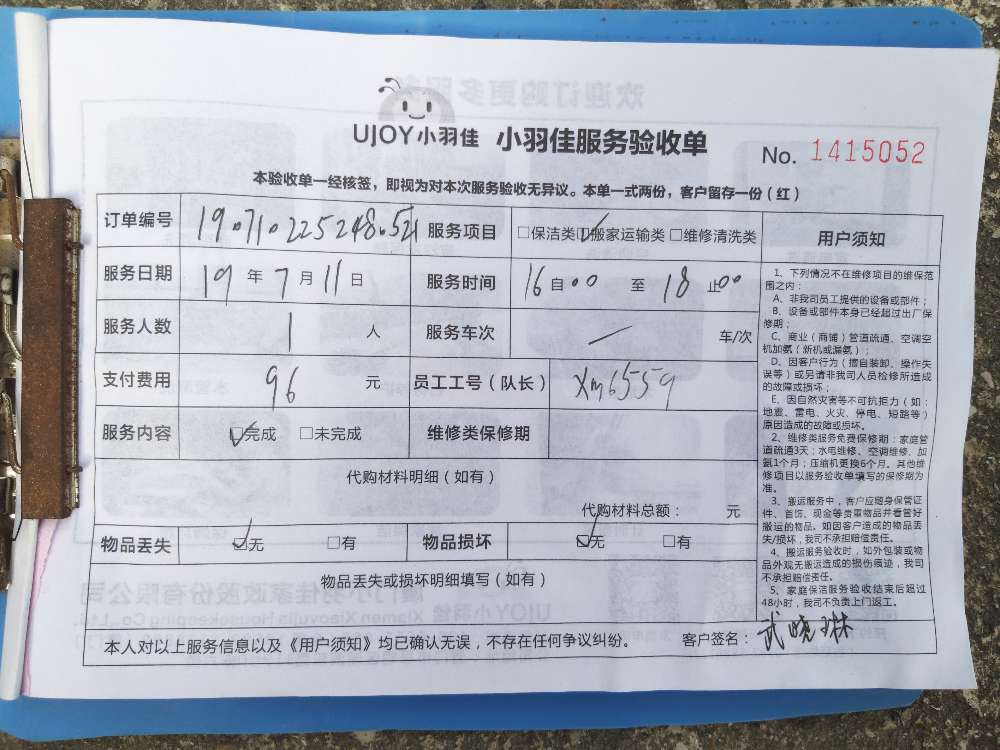 UJOY小羽佳 小羽佳服务验收单 No. 1415052
本验收单一经核签，即视为对本次服务验收无异议。本单一式两份，客户留存一份（红）
订单编号 19071022524852 服务项目 □保洁类☑搬家运输类 □维修清洗类
服务日期 19 年 7 月 11 日 服务时间 16 自00 至 18 止00
服务人数 1 人 服务车次 / 车/次
支付费用 96 元 员工工号（队长） xm6559
服务内容 ☑完成 □未完成 维修类保修期
代购材料明细（如有）
代购材料总额： 元
物品丢失 ☑无 □有 物品损坏 ☑无 □有
物品丢失或损坏明细填写（如有）
本人对以上服务信息以及《用户须知》均已确认无误，不存在任何争议纠纷。 客户签名：武晓琳
用户须知
1、下列情况不在维修项目的维保范
围之内：
A、非我司员工提供的设备或部件；
B、设备或部件本身已经超过出厂保
修期；
C、商业（商铺）管道疏通、空调空
机加氨（新机或漏氨）；
D、因客户行为（擅自装卸、操作失
误等）或另请非我司人员检修所造成
的故障或损坏；
E、因自然灾害等不可抗拒力（如：
地震、雷电、火灾、停电、短路等）
原因造成的故障或损坏。
2、维修类服务免费保修期：家庭管
道疏通3天；水电维修、空调维修、加
氨1个月；压缩机更换6个月。其他维
修项目以服务验收单填写的保修期为
准。
3、搬运服务中，客户应随身保管证
件、首饰、现金等贵重物品并看管好
搬运的物品。如因客户造成的物品丢
失/损坏，我司不承担赔偿责任。
4、搬运服务验收时，如外包装或物
品外观无搬运造成的损伤痕迹，我司
不承担赔偿责任。
5、家庭保洁服务验收结束后超过
48小时，我司不负责上门返工。